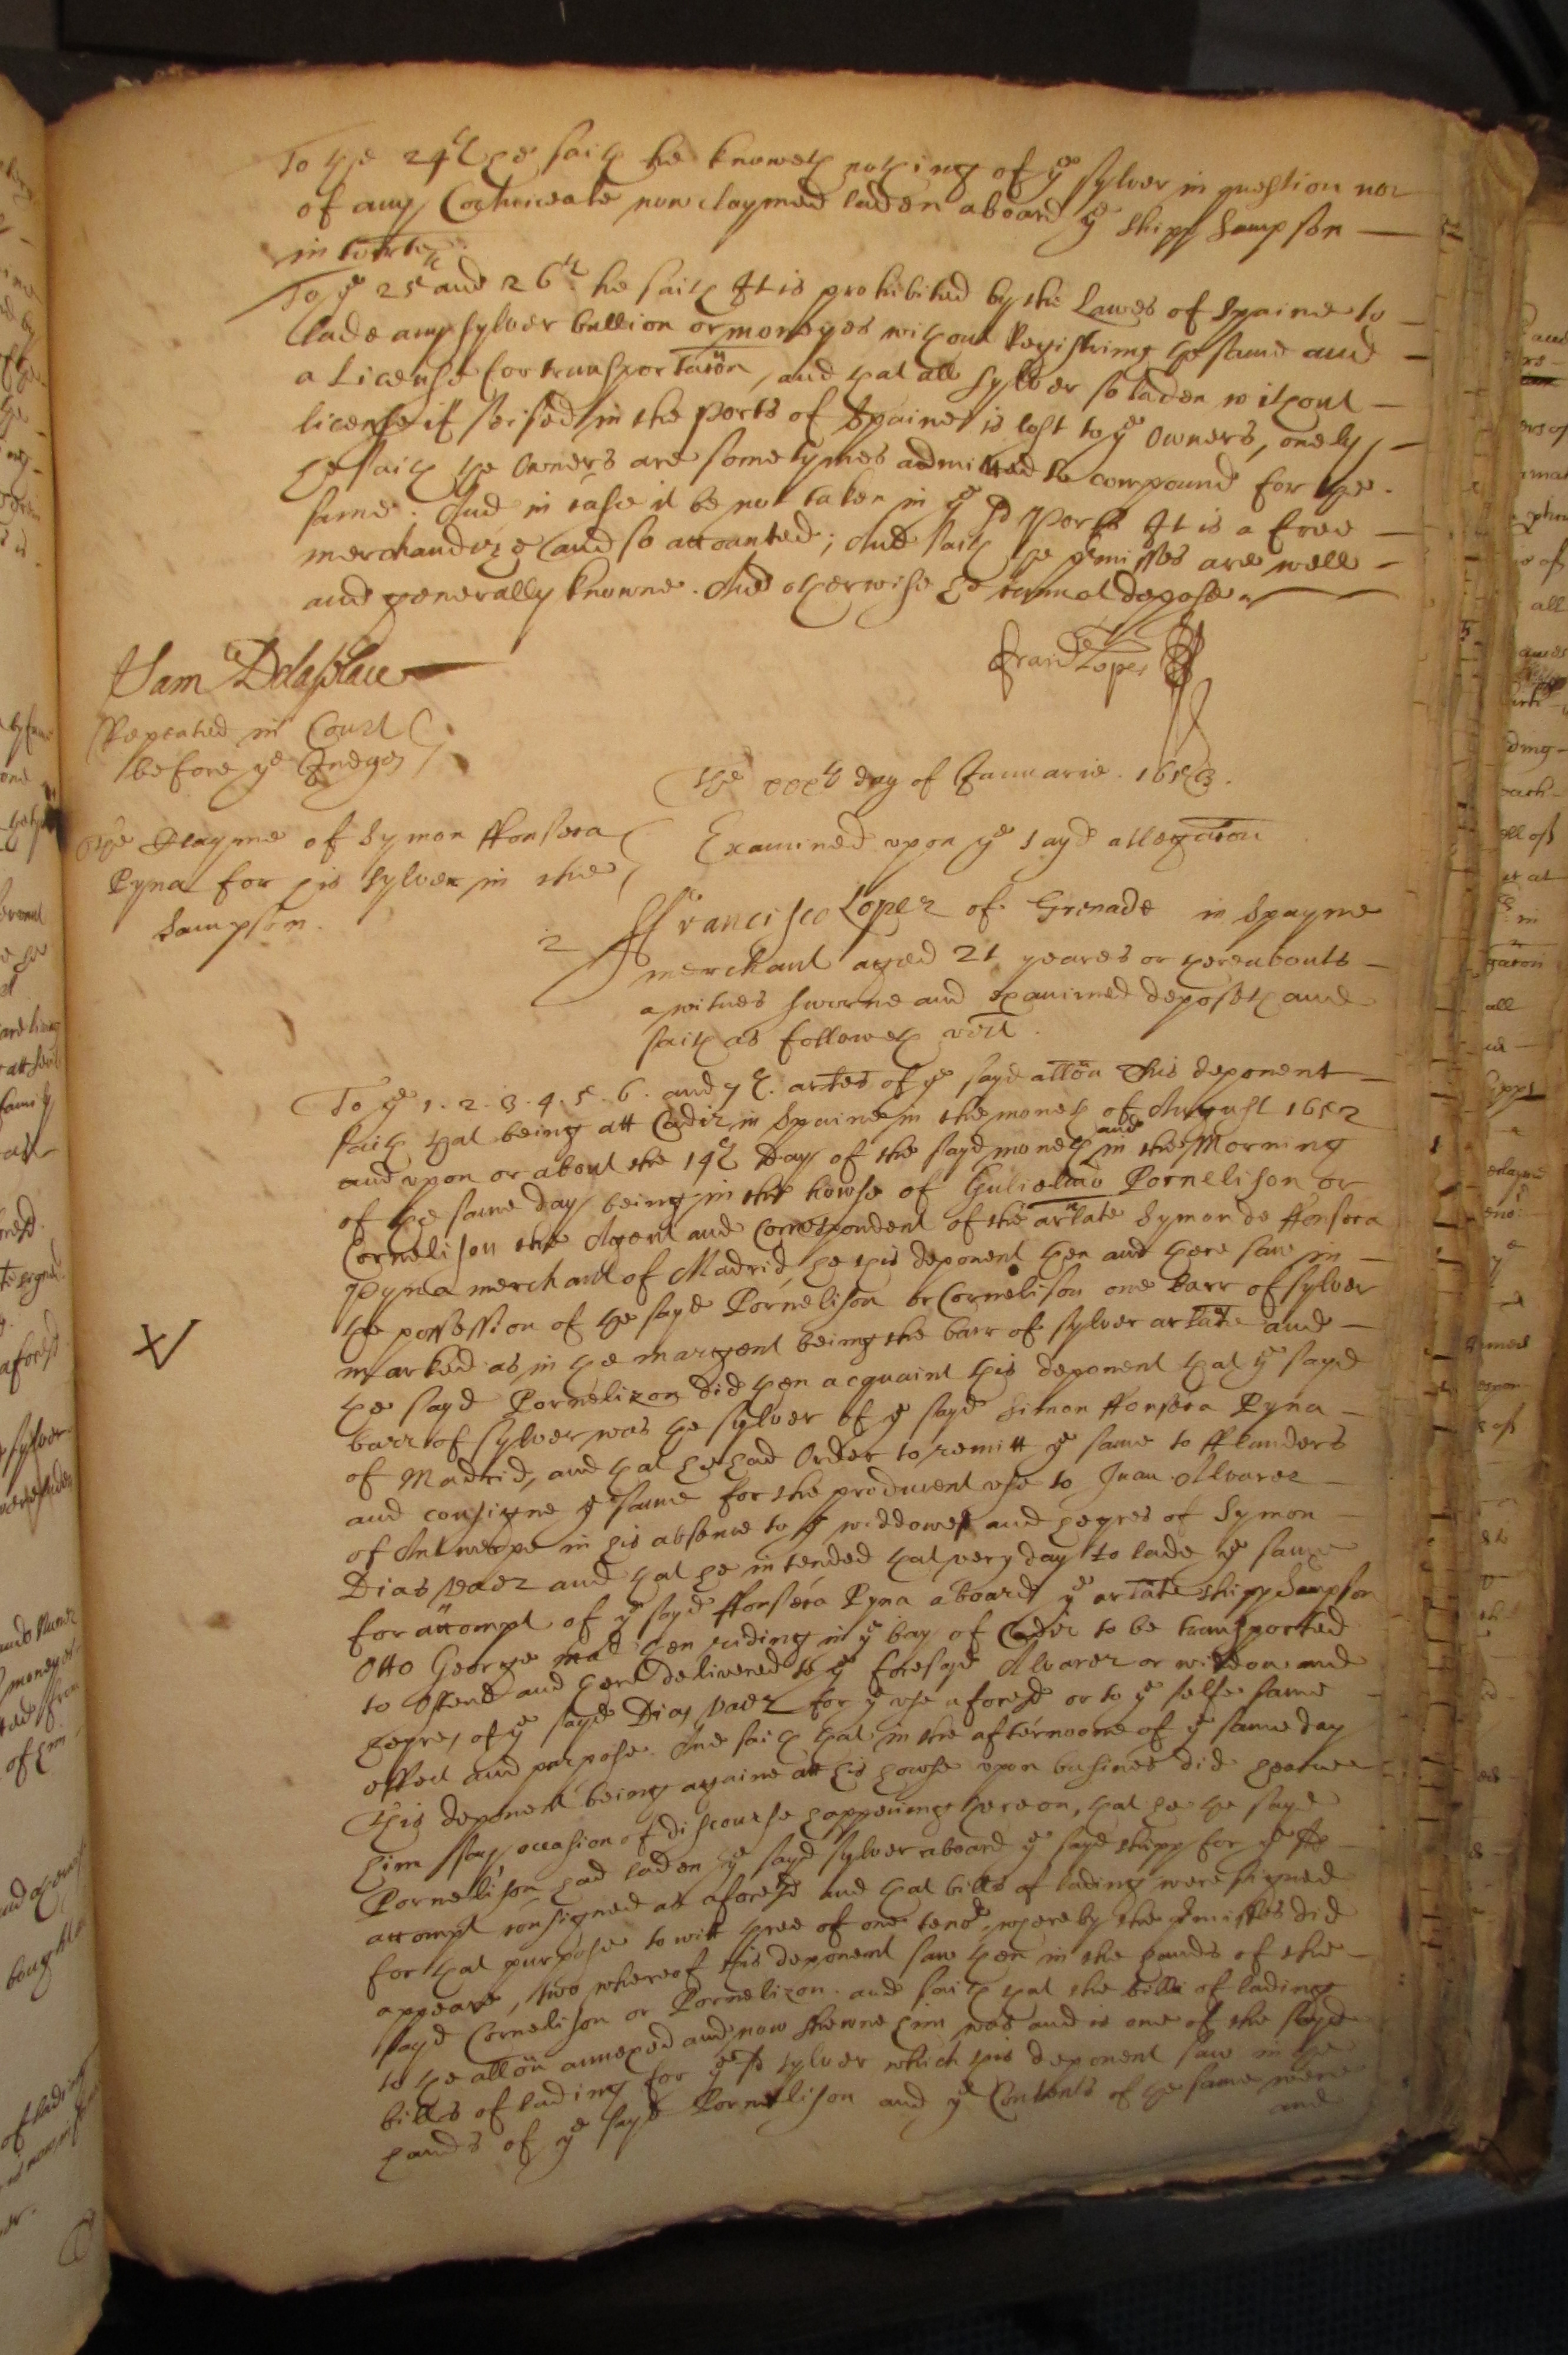 To the 24th he saith he knoweth nothing of ye sylver in question nor
of any Cochineale now claymed laden aboard ye shipp Sampson
To ye 25 and 26th. he saith It is prohibited by the Lawes of Spaine to
lade any sylver bullion or moneyes without Registring the same and
a License for transportacon, and that all sylver so laden without
license if seised in the Ports of Spaine is lost to ye Owners, onely
he saith the Owners are sometymes admitted to compound for the
same. And in case it be not taken in ye sd Ports It is a free
merchandize and so accounted; And saith the pmisses are well
and generally knowne. And otherwise he cannot depose
Franco Lopez
Sam
Repeated in Court
before ye Judges
The xxxth day of Januarie. 1653.
The Clayme of Symon ffonseca
Pyna for his sylver in the
Sampson.
Examined upon ye sayd allegacon
2
ffrancisco Lopez of Grenade in Spayne
merchant aged 21 yeares or thereabouts
a witnes sworne and examined deposeth and
saith as followeth vizt.
To ye 1. 2. 3. 4. 5. 6. and 7th. artes of ye sayd allon This deponent
saith that being att Cadiz in Spaine in the moneth of August 1652
and upon or about the 14th day of the sayd moneth and in the Morning
of the same day being in the howse of Gulielmo Pornelison or
Cornelison the Agent and Correspondent of the arlate Symon de ffonseca
Pyna merchant of Madrid he this deponent then and there saw in
the possession of the sayd Pornelison or Cornelison one barr of sylver
marked as in the margent being the barr of sylver arlate and
the sayd Pornelizon did then acquaint this deponent that ye sayd
barr of sylver was the sylver of ye sayd Simon ffonseca Pyna
of Madrid, and that he had Order to remitt ye same to fflanders
and consigne ye same for the producent use to Juan Alvarez
of Antwerpe in his absence to ye widdowe and heyres of Symon
Dias Vaez and that he intended that very day to lade ye same
for accompt of ye sayd ffonseca Pyna aboard ye arlate shipp Sampson
Otto George mr then riding in ye bay of Cadiz to be transported
to Ostend and there delivered to ye foresayd Alvarez or widdow and
heyres of ye sayd Dias Vaez for ye use aforesd or to ye selfe same
effect and purpose. And saith that in the afternoone of ye same day
this deponent being againe att his howse upon busines did heare
him say, occasion of discourse happening thereon, that he the sayd
Pornelison had laden ye sayd sylver aboard ye sayd shipp for ye sd
accompt consigned as aforesd and that bills of lading were signed
for that purpose to witt three of one tenor, whereby the pmisses did
appeare, two whereof this deponent saw then in the hands of the
sayd Cornelison or Pornelizon. and saith that the bill of lading
to the allon annexed and now shewne him was and is one of the sayd
bills of lading for ye sd sylver which this deponent saw in the
hands of ye sayd Pornelison and ye Contents of the same were
and